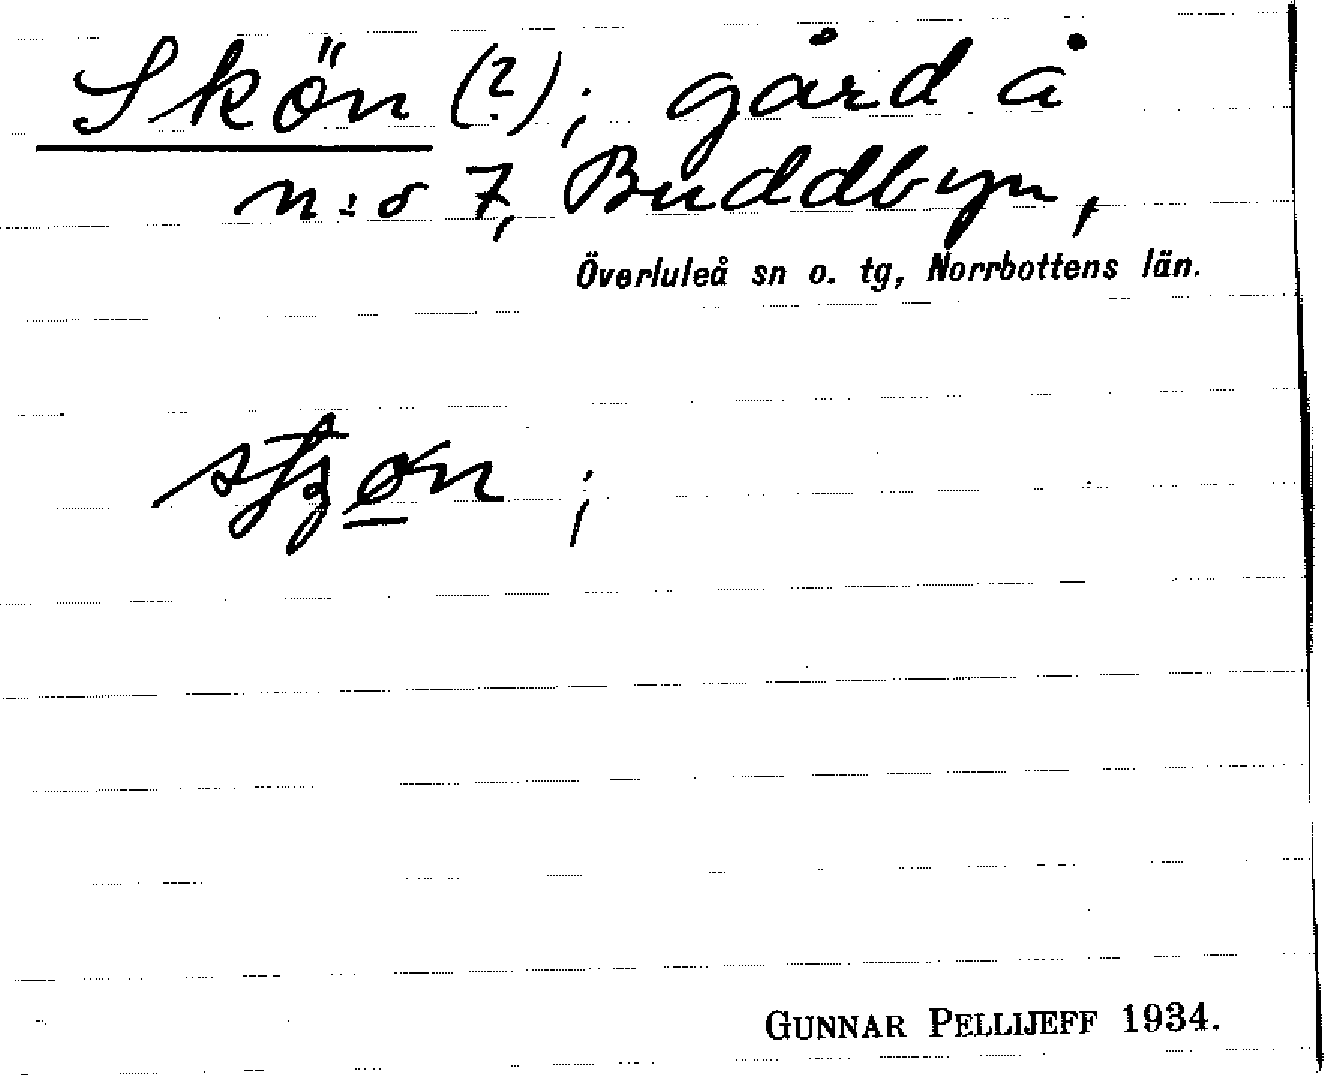 Skön (?); gård å
n:o 7, Buddbyn,
Överluleå sn o. tg, Norrbottens län.
GUNNAR PELLIJEFF 1934.